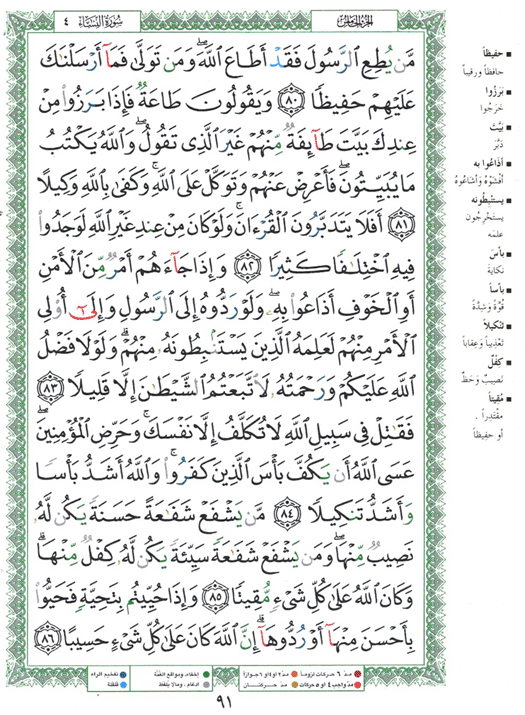 الجزء الخامس
سورة النساء ٤
مَّن يُطِعِ ٱلرَّسُولَ فَقَدْ أَطَاعَ ٱللَّهَ ۖ وَمَن تَوَلَّىٰ فَمَآ أَرْسَلْنَٰكَ
عَلَيْهِمْ حَفِيظًا ٨٠ وَيَقُولُونَ طَاعَةٌ فَإِذَا بَرَزُوا۟ مِنْ
عِندِكَ بَيَّتَ طَآئِفَةٌ مِّنْهُمْ غَيْرَ ٱلَّذِى تَقُولُ ۖ وَٱللَّهُ يَكْتُبُ
مَا يُبَيِّتُونَ ۖ فَأَعْرِضْ عَنْهُمْ وَتَوَكَّلْ عَلَى ٱللَّهِ ۚ وَكَفَىٰ بِٱللَّهِ وَكِيلًا
٨١ أَفَلَا يَتَدَبَّرُونَ ٱلْقُرْءَانَ ۚ وَلَوْ كَانَ مِنْ عِندِ غَيْرِ ٱللَّهِ لَوَجَدُوا۟
فِيهِ ٱخْتِلَٰفًا كَثِيرًا ٨٢ وَإِذَا جَآءَهُمْ أَمْرٌ مِّنَ ٱلْأَمْنِ
أَوِ ٱلْخَوْفِ أَذَاعُوا۟ بِهِۦ ۖ وَلَوْ رَدُّوهُ إِلَى ٱلرَّسُولِ وَإِلَىٰٓ أُو۟لِى
ٱلْأَمْرِ مِنْهُمْ لَعَلِمَهُ ٱلَّذِينَ يَسْتَنۢبِطُونَهُۥ مِنْهُمْ ۗ وَلَوْلَا فَضْلُ
ٱللَّهِ عَلَيْكُمْ وَرَحْمَتُهُۥ لَٱتَّبَعْتُمُ ٱلشَّيْطَٰنَ إِلَّا قَلِيلًا ٨٣
فَقَٰتِلْ فِى سَبِيلِ ٱللَّهِ لَا تُكَلَّفُ إِلَّا نَفْسَكَ ۚ وَحَرِّضِ ٱلْمُؤْمِنِينَ ۖ
عَسَى ٱللَّهُ أَن يَكُفَّ بَأْسَ ٱلَّذِينَ كَفَرُوا۟ ۚ وَٱللَّهُ أَشَدُّ بَأْسًا
وَأَشَدُّ تَنكِيلًا ٨٤ مَّن يَشْفَعْ شَفَٰعَةً حَسَنَةً يَكُن لَّهُۥ
نَصِيبٌ مِّنْهَا ۖ وَمَن يَشْفَعْ شَفَٰعَةً سَيِّئَةً يَكُن لَّهُۥ كِفْلٌ مِّنْهَا ۗ
وَكَانَ ٱللَّهُ عَلَىٰ كُلِّ شَىْءٍ مُّقِيتًا ٨٥ وَإِذَا حُيِّيتُم بِتَحِيَّةٍ فَحَيُّوا۟
بِأَحْسَنَ مِنْهَآ أَوْ رُدُّوهَآ ۗ إِنَّ ٱللَّهَ كَانَ عَلَىٰ كُلِّ شَىْءٍ حَسِيبًا ٨٦
حفيظاً
حافظاً ورقيباً
برزوا
خرجوا
بيّت
دبّر
أذاعوا به
أفشوه وأشاعوه
يستنبطونه
يستخرجون
علمه
بأس
نكاية
بأساً
قوّة وشدّة
تنكيلاً
تعذيباً وعقاباً
كِفْلٌ
نصيب وحظّ
مُقيتاً
مقتدراً .
أو حفيظاً
مدّ ٦ حركات لزوماً
مدّ ٢ او ٤ او ٦ جوازاً
إخفاء، ومواقع الغُنَّة
تفخيم الراء
مدّ واجب ٤ او ٥ حركات
مدّ حركتـــان
ادغام ، ومالا يُلفَظ
قلقلة
٩١